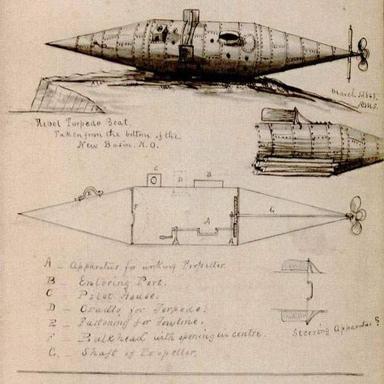 March 1865
Rebel Torpedo Boat.
Taken from the bottom of the
New Basin. N.O.
C
D
B
E
F
A
G
A
A – Apparatus for working Propeller.
B – Entering Port.
C – Pilot House.
D – Cradle for Torpedo?
E – Fastening for Towline.
F – Bulkhead with opening in centre.
G. – Shaft of Propeller.
Steering Apparatus?